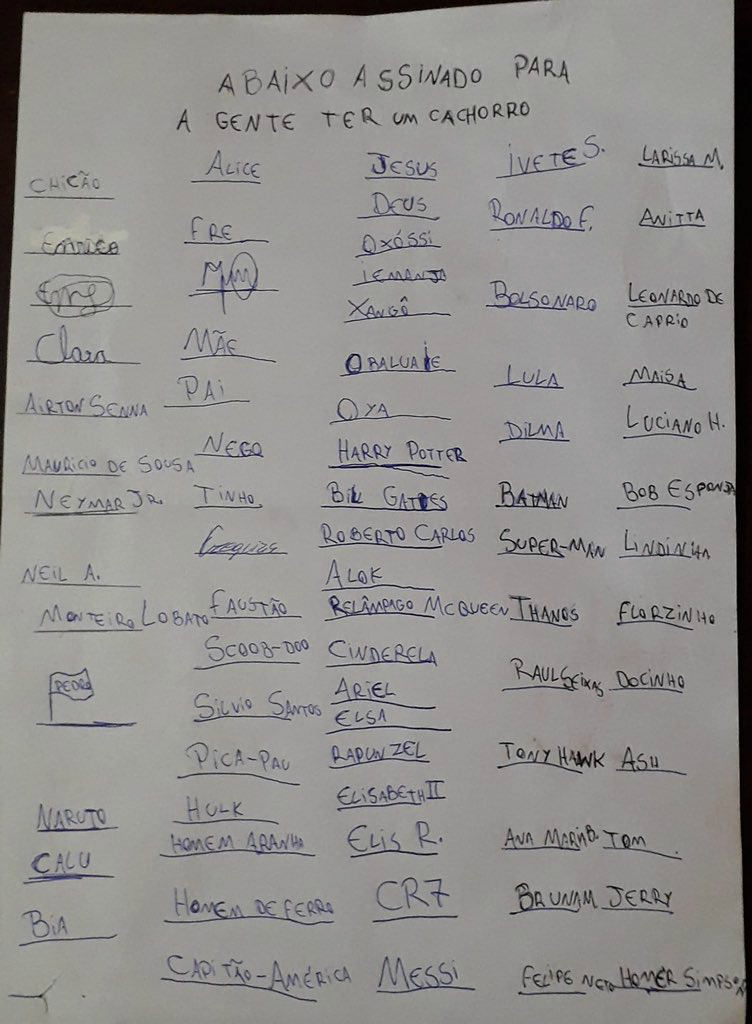 ABAIXO ASSINADO PARA
A GENTE TER UM CACHORRO
CHICÃO
ENRICO
Clara
AIRTON SENNA
MAURICIO DE SOUSA
NEYMAR JR.
NEIL A.
MONTEIRO LOBATO
PEDRO
NARUTO
CALU
BIA
ALICE
FRE
MÃE
PAI
NEGO
TINHO
FAUSTÃO
SCOOB-DOO
SILVIO SANTOS
PICA-PAU
HULK
HOMEM ARANHA
HOMEM DE FERRO
CAPITÃO-AMÉRICA
JESUS
DEUS
OXÓSSI
IEMANJA
XANGÔ
OBALUAIE
OYA
HARRY POTTER
BILL GATES
ROBERTO CARLOS
ALOK
RELÂMPAGO MCQUEEN
CINDERELA
ARIEL
ELSA
RAPUNZEL
ELISABETH II
ELIS R.
CR7
MESSI
IVETE S.
RONALDO F.
BOLSONARO
LULA
DILMA
BATMAN
SUPER-MAN
THANOS
RAUL SEIXAS
TONY HAWK
ANA MARIA B.
BRUNA M
FELIPE NETO
LARISSA M.
ANITTA
LEONARDO DE
CAPRIO
MAISA
LUCIANO H.
BOB ESPONJA
LINDINHA
FLORZINHA
DOCINHO
ASH
TOM
JERRY
HOMER SIMPSON